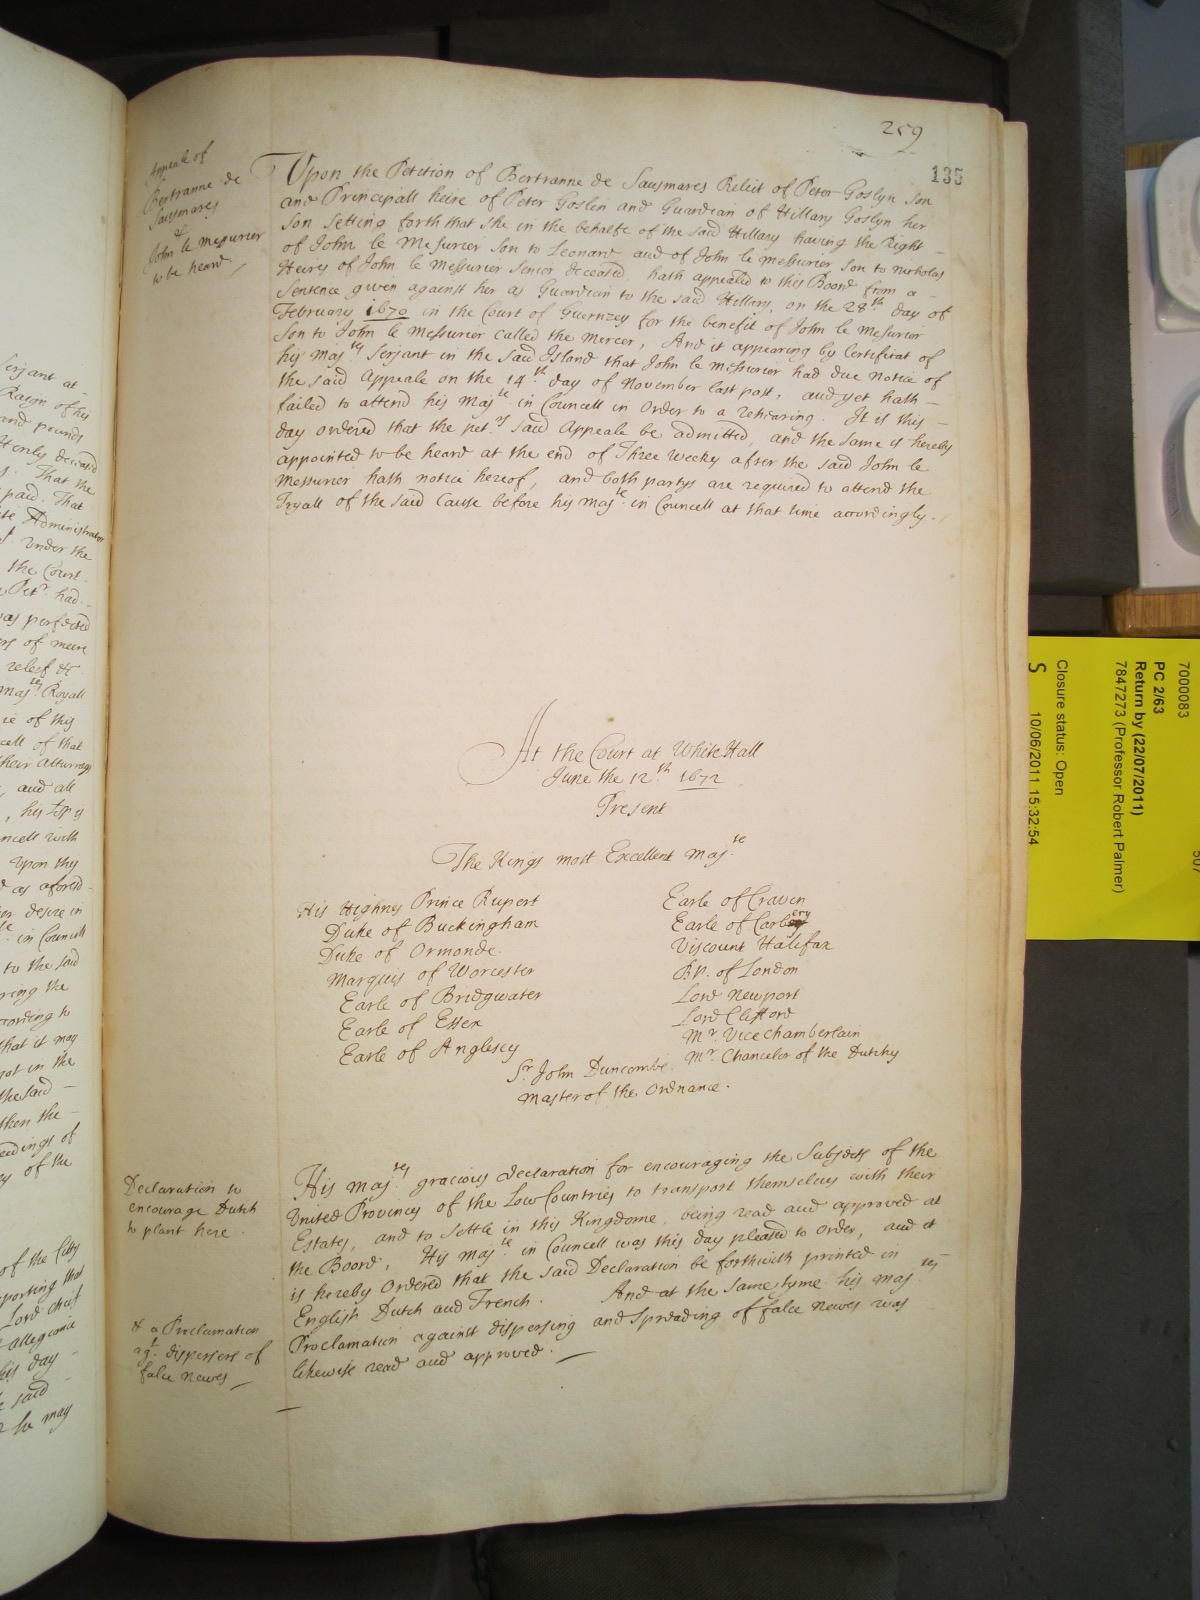 259
135
Appeale of
Bertranne de
Sausmares
&
John le Messurier
to be heard.
Upon the Petition of Bertranne de Sausmares Relict of Peter Goslyn Son
and Principall heire of Peter Goslin and Guardian of Hillary Goslyn her
Son Setting forth that she in the behalfe of the said Hillary having the Right
of John le Messurier Son to Leonard and of John le Messurier Son to Nicholas
Heires of John le Messurier Senior deceased hath appealed to this Board from a
Sentence given against her as Guardian to the said Hillary, on the 28th day of
February 1670 in the Court of Guernzey for the benefit of John le Messurier
Son to John le Messurier called the Mercer, And it appearing by Certificat of
his Majtys Serjant in the said Island that John le Messurier had due notice of
the said Appeale on the 14th day of November last past, and yet hath
failed to attend his Majtie in Councell in Order to a rehearing. It is this
day ordered that the petrs said Appeale be admitted, and the same is hereby
appointed to be heard at the end of Three Weeks after the said John le
Messurier hath notice hereof, and both partys are required to attend the
Tryall of the said Cause before his Majtie in Councell at that time accordingly.
At the Court at WhiteHall
June the 12th 1672
Present
The Kings most Excellent Majtie
His Highnes Prince Rupert
Duke of Buckingham
Duke of Ormonde.
Marquis of Worcester
Earle of Bridgwater
Earle of Essex
Earle of Anglesey
Earle of Craven
Earle of Carbery
Viscount Halifax
Bp. of London
Lord Newport
Lord Clifford
Mr. Vice Chamberlain
Mr. Chancelor of the Dutchy
Sr. John Duncombe
Master of the Ordnance.
Declaration to
encourage Dutch
to plant here.
His Majtys gracious Declaration for encouraging the Subjects of the
United Provinces of the Low Countries to transport themselves with their
Estates, and to Settle in this Kingdome, being read and approved at
the Board, His Majtie in Councell was this day pleased to Order, and it
is hereby Ordered that the said Declaration be forthwith printed in
English Dutch and French. And at the same tyme his Majtys
Proclamation against dispersing and Spreading of false Newes was
likewise read and approved.
& a Proclamation
agt. dispersers of
false newes
Serjant at
Raign of his
and pounds
That the
paid. That
Administrator
Under the
the Court
Petr. had
was perfected
of meere
releif &c
Majtys Royall
of this
cell of that
their Atturneys
and all
ncell with
Upon this
as aforesd
desire in
in Councell
to the said
ring the
cording to
that it may
not in the
the said
then the
eedings of
of the
of the Citty
porting that
Lord cheif
allegiance
his day
said
he may
7000083
PC 2/63
Return by (22/07/2011)
7847273 (Professor Robert Palmer)
Closure status: Open
S 10/06/2011 15:32:54